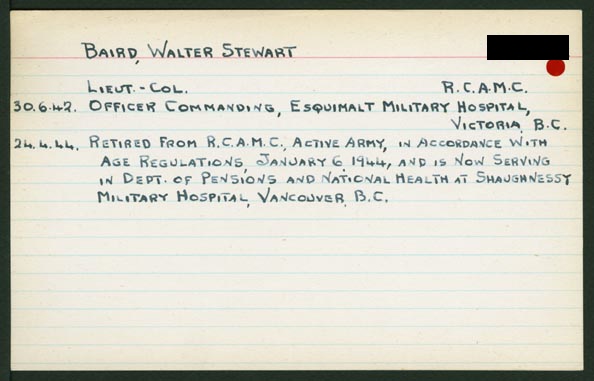 BAIRD, WALTER STEWART
LIEUT.-COL. R.C.A.M.C.
30.6.42. OFFICER COMMANDING, ESQUIMALT MILITARY HOSPITAL,
VICTORIA, B.C.
24.4.44. RETIRED FROM R.C.A.M.C., ACTIVE ARMY, IN ACCORDANCE WITH
AGE REGULATIONS, JANUARY 6, 1944, AND IS NOW SERVING
IN DEPT. OF PENSIONS AND NATIONAL HEALTH AT SHAUGHNESSY
MILITARY HOSPITAL, VANCOUVER, B.C.